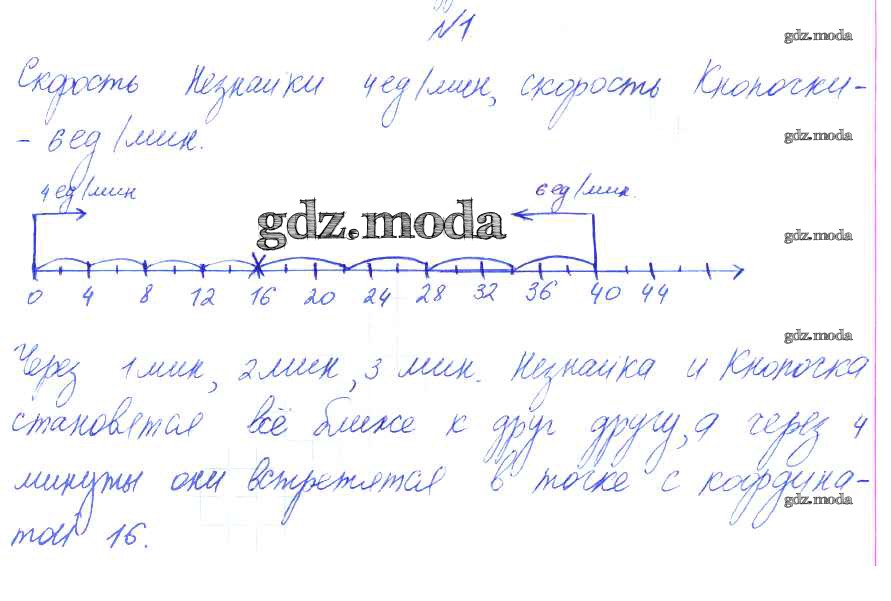 №1
gdz.moda
Скорость Незнайки 4ед/мин, скорость Кнопочки-
- 6ед/мин.
gdz.moda
4ед/мин
6ед/мин.
gdz.moda
gdz.moda
0 4 8 12 16 20 24 28 32 36 40 44
gdz.moda
Через 1мин, 2мин, 3 мин. Незнайка и Кнопочка
становятся всё ближе к друг другу, а через 4
минуты они встретятся в точке с координа-
gdz.moda
той 16.